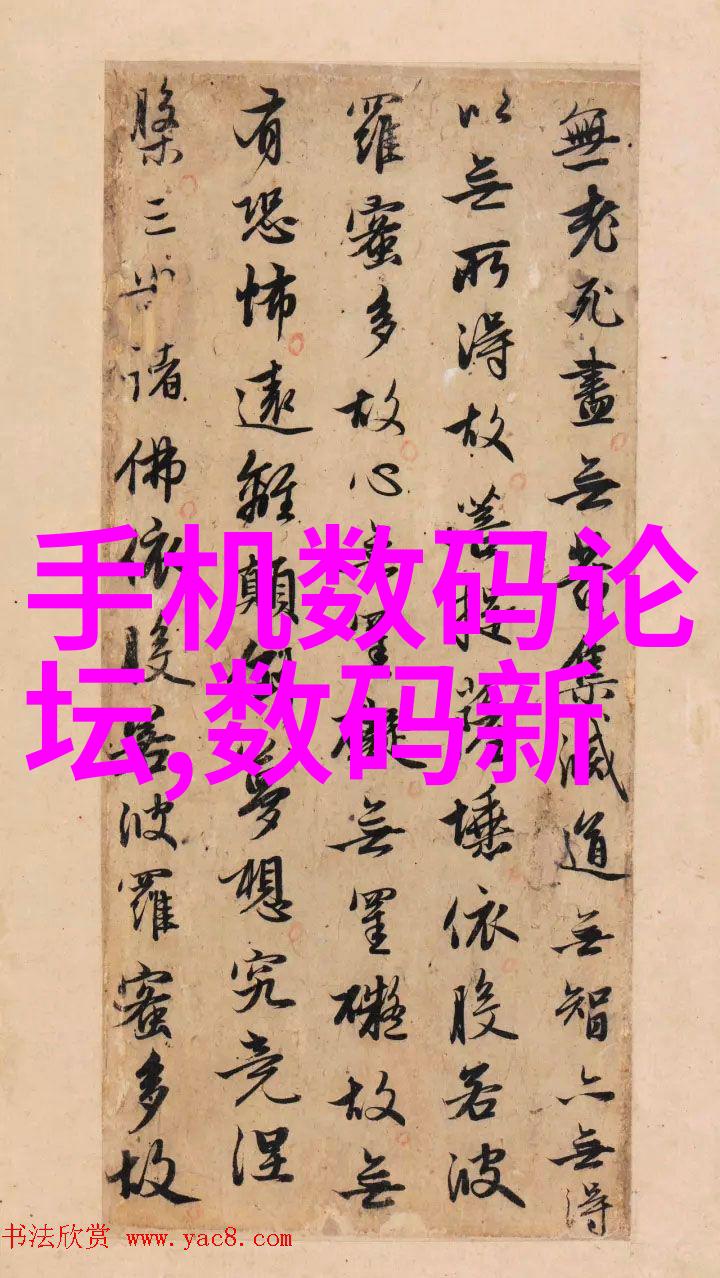 無老死盡無苦集滅道無智亦無得
以無所得故菩提薩埵依般若波
羅蜜多故心無罣礙無罣礙故無
有恐怖遠離顛倒夢想究竟涅
槃三世諸佛依般若波羅蜜多故
手机数码论
坛,数码新
书法欣赏 www.yac8.com